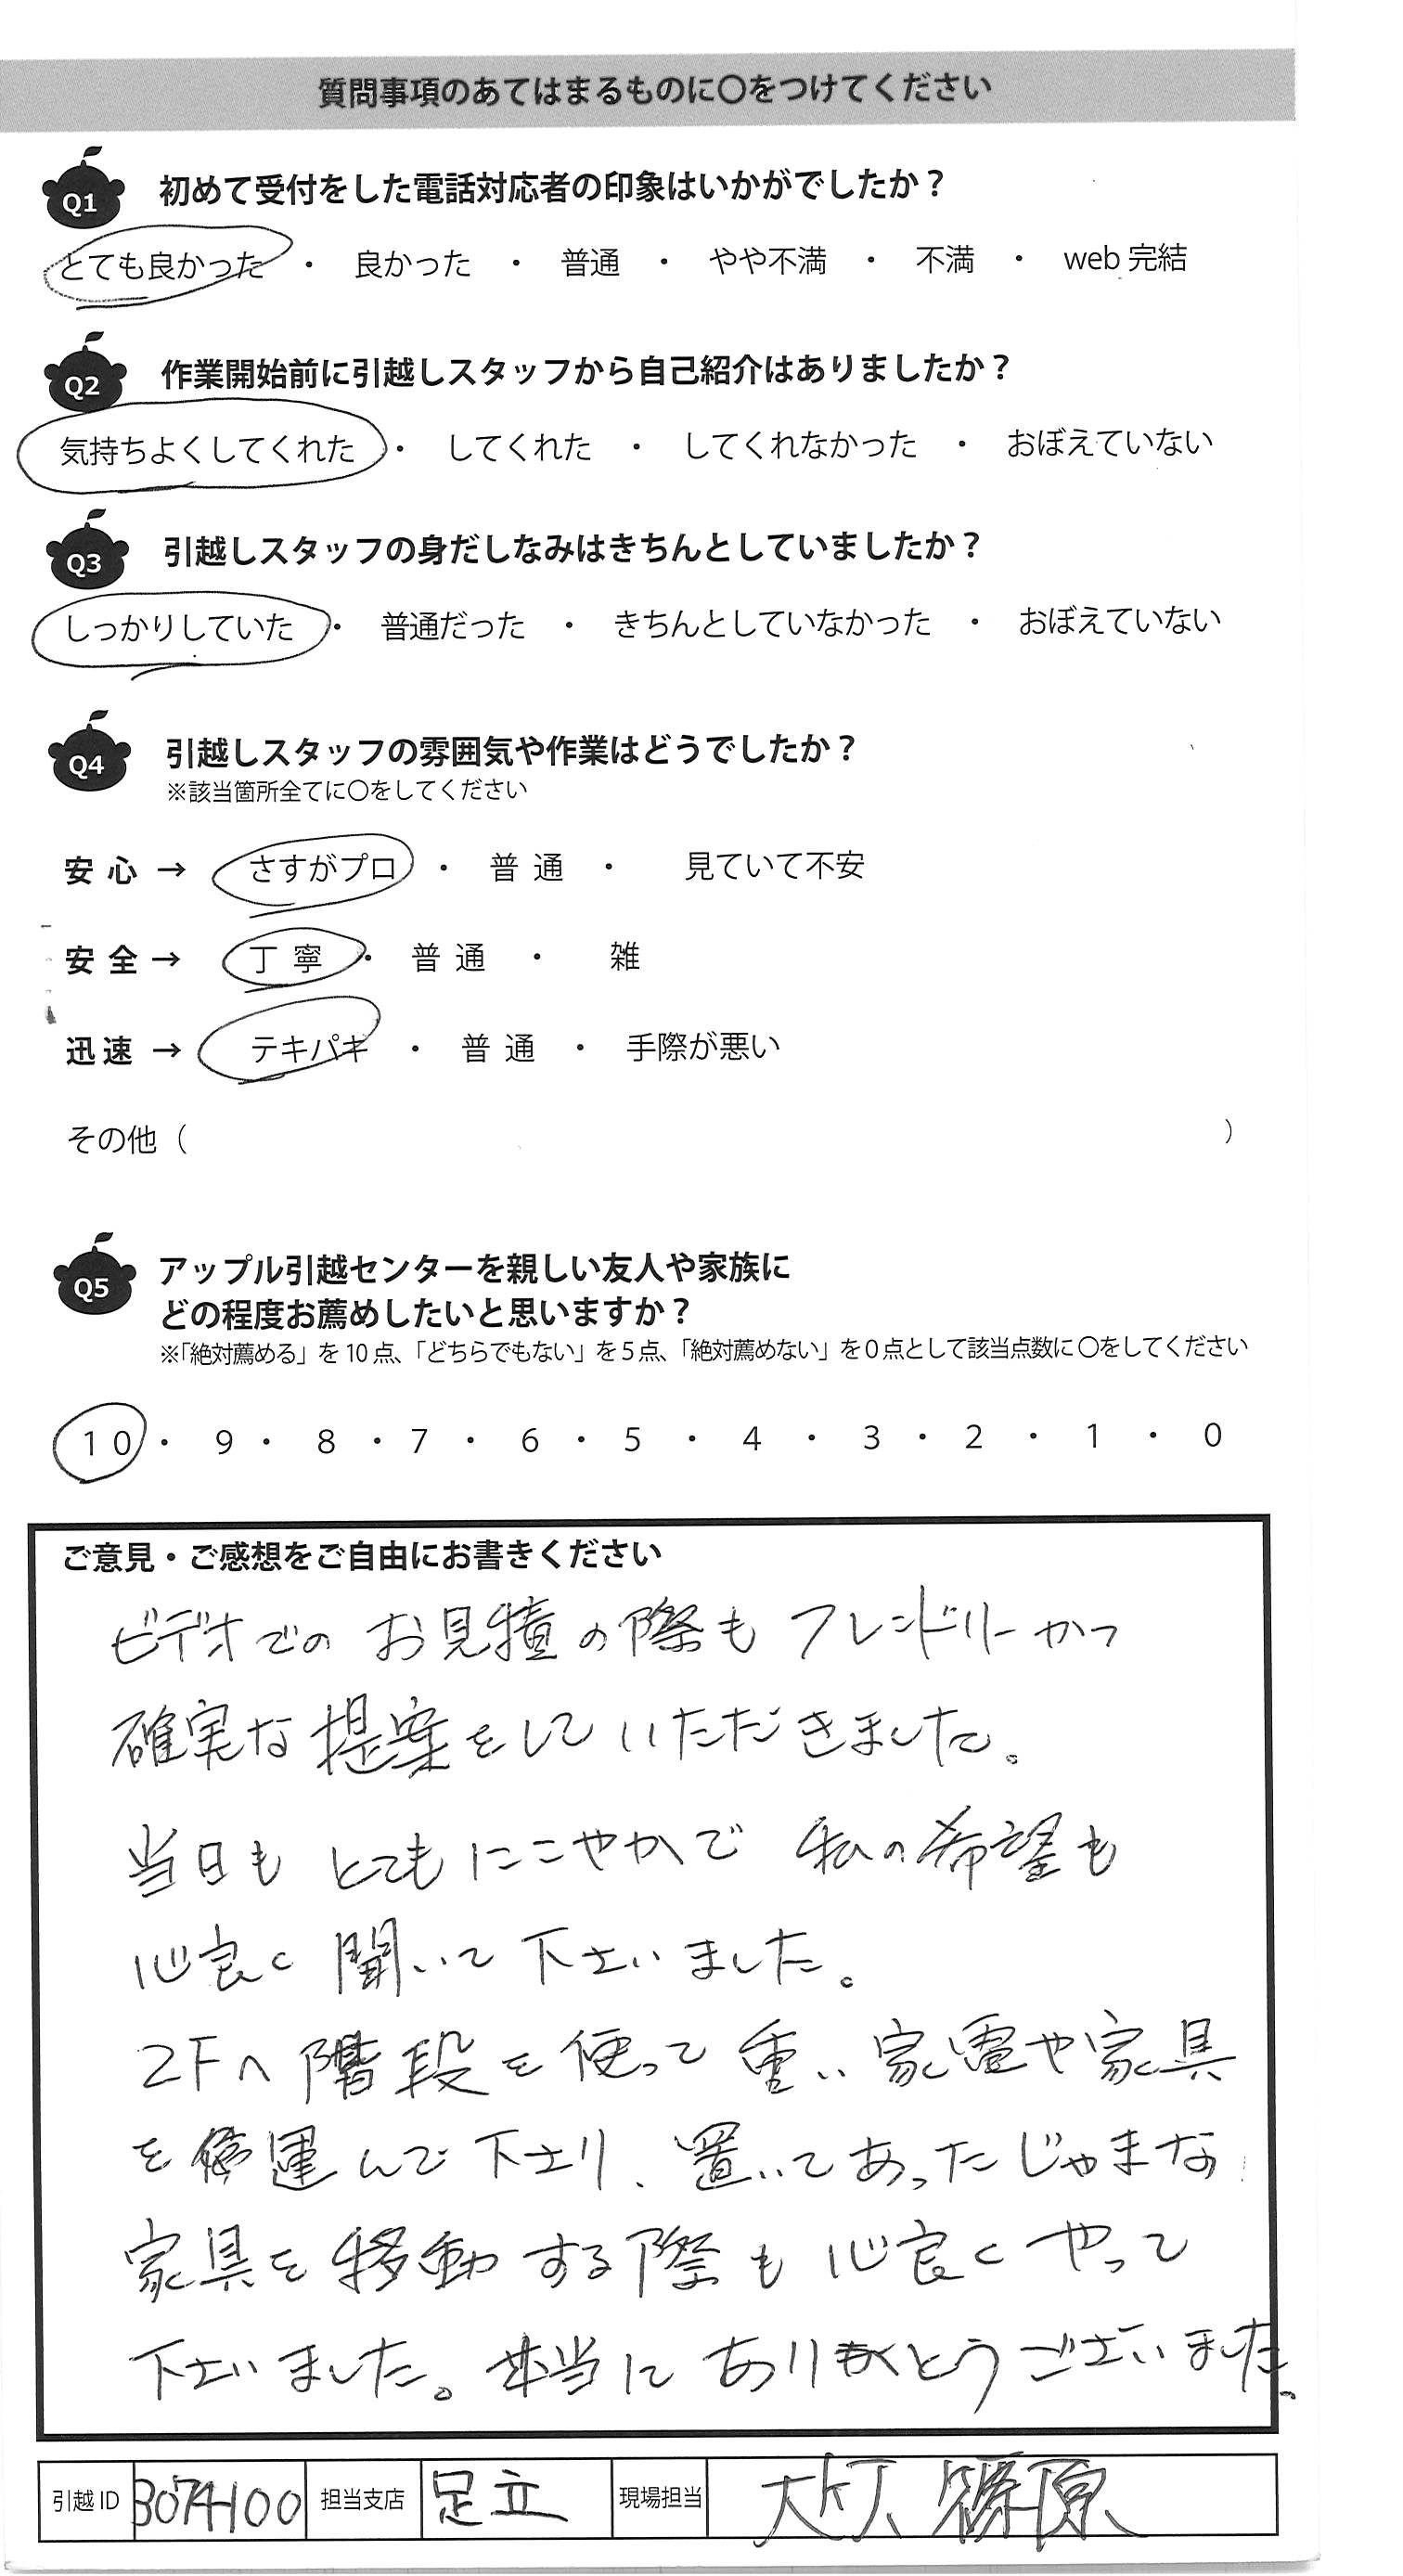 質問事項のあてはまるものに〇をつけてください
Q1 初めて受付をした電話対応者の印象はいかがでしたか？
とても良かった ・ 良かった ・ 普通 ・ やや不満 ・ 不満 ・ web 完結
Q2 作業開始前に引越しスタッフから自己紹介はありましたか？
気持ちよくしてくれた ・ してくれた ・ してくれなかった ・ おぼえていない
Q3 引越しスタッフの身だしなみはきちんとしていましたか？
しっかりしていた ・ 普通だった ・ きちんとしていなかった ・ おぼえていない
Q4 引越しスタッフの雰囲気や作業はどうでしたか？
※該当箇所全てに〇をしてください
安心 → さすがプロ ・ 普通 ・ 見ていて不安
安全 → 丁寧 ・ 普通 ・ 雑
迅速 → テキパキ ・ 普通 ・ 手際が悪い
その他（ ）
Q5 アップル引越センターを親しい友人や家族に
どの程度お薦めしたいと思いますか？
※「絶対薦める」を10点、「どちらでもない」を5点、「絶対薦めない」を0点として該当点数に〇をしてください
10 ・ 9 ・ 8 ・ 7 ・ 6 ・ 5 ・ 4 ・ 3 ・ 2 ・ 1 ・ 0
ご意見・ご感想をご自由にお書きください
ビデオでのお見積の際もフレンドリーかつ
確実な提案をしていただきました。
当日もとてもにこやかで私の希望も
心良く聞いて下さいました。
2Fへ階段を使って重い家電や家具
を運んで下さり、置いてあったじゃまな
家具を移動する際も心良くやって
下さいました。本当にありがとうございました。
引越ID 3074100 担当支店 足立 現場担当 篠原